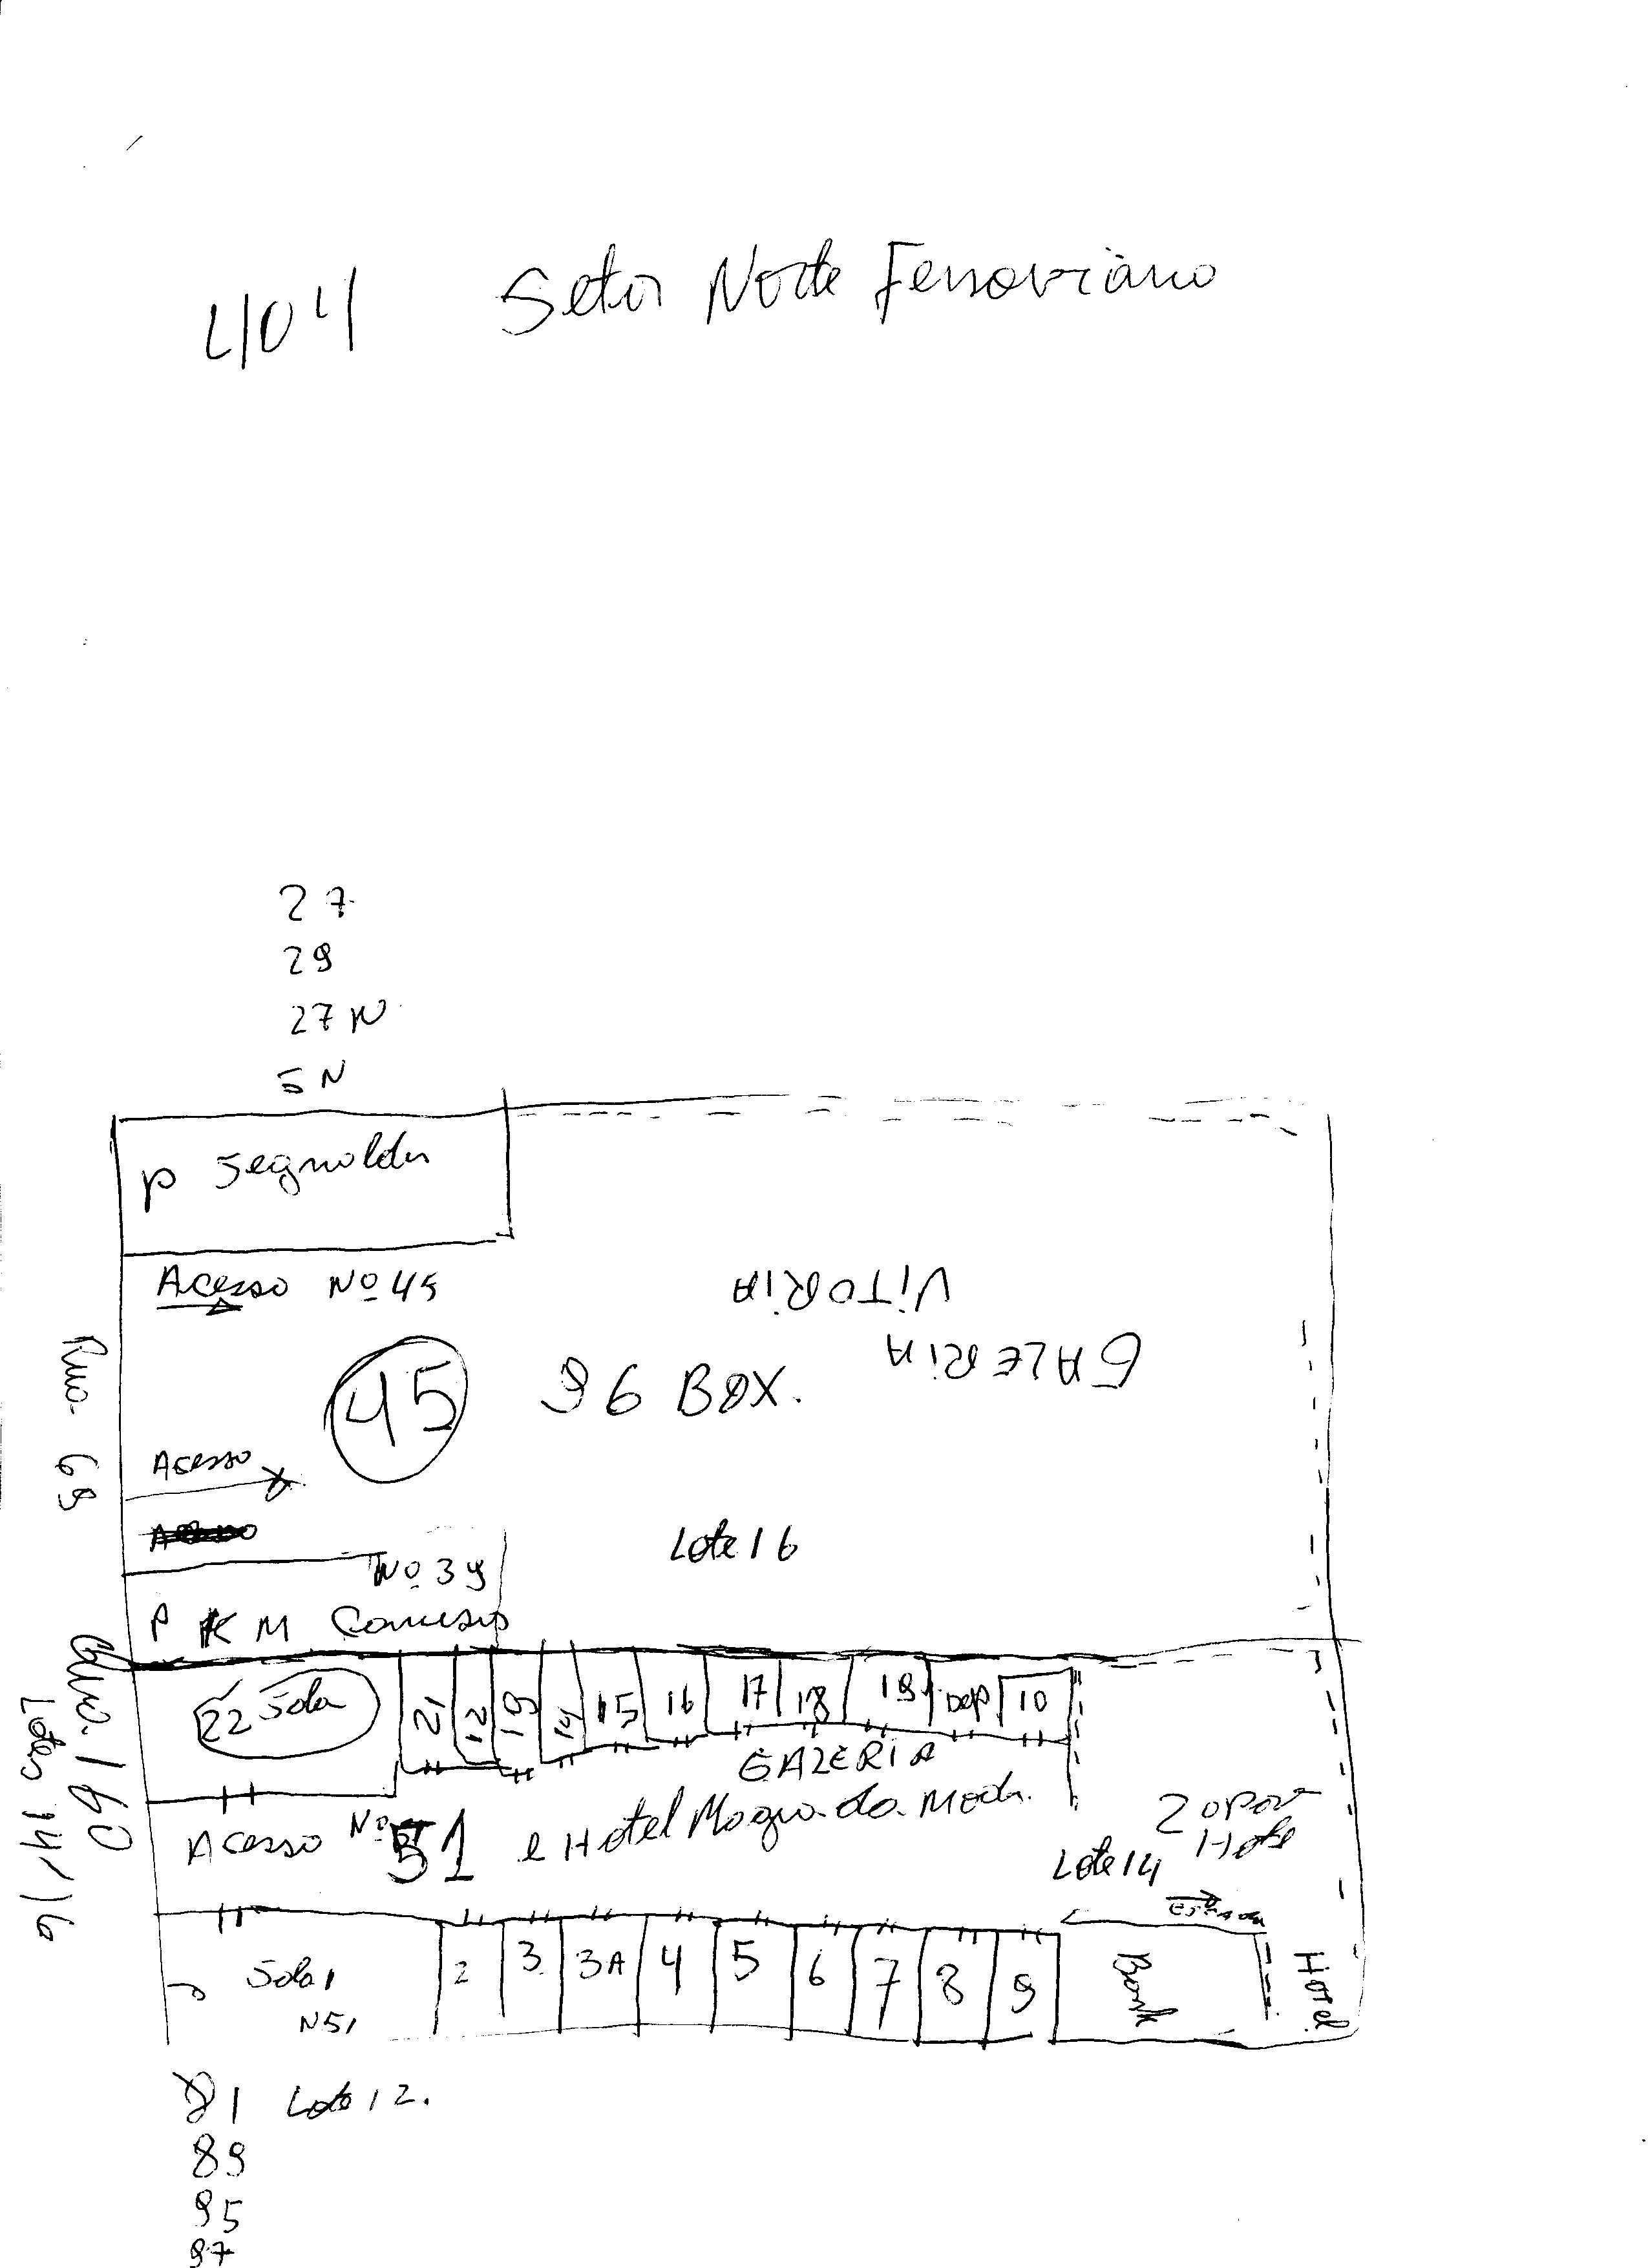 404 Setor Norte Ferroviario
27
29
27 N
5 N
P
Acesso Nº 45
VITORIA
GALERIA
45
96 BOX.
Rua 69
Acesso
Lote 16
Nº 39
P K M
22 Sala
21
12
13
14
15
16
17
18
19
Dep
10
GALERIA
Acesso Nº 51 e Hotel da Moda.
Lote 14
Hotel
160
Lotes 14/16
Sala 1
N 51
2
3
3A
4
5
6
7
8
9
Hotel
81 Lote 12.
89
95
97